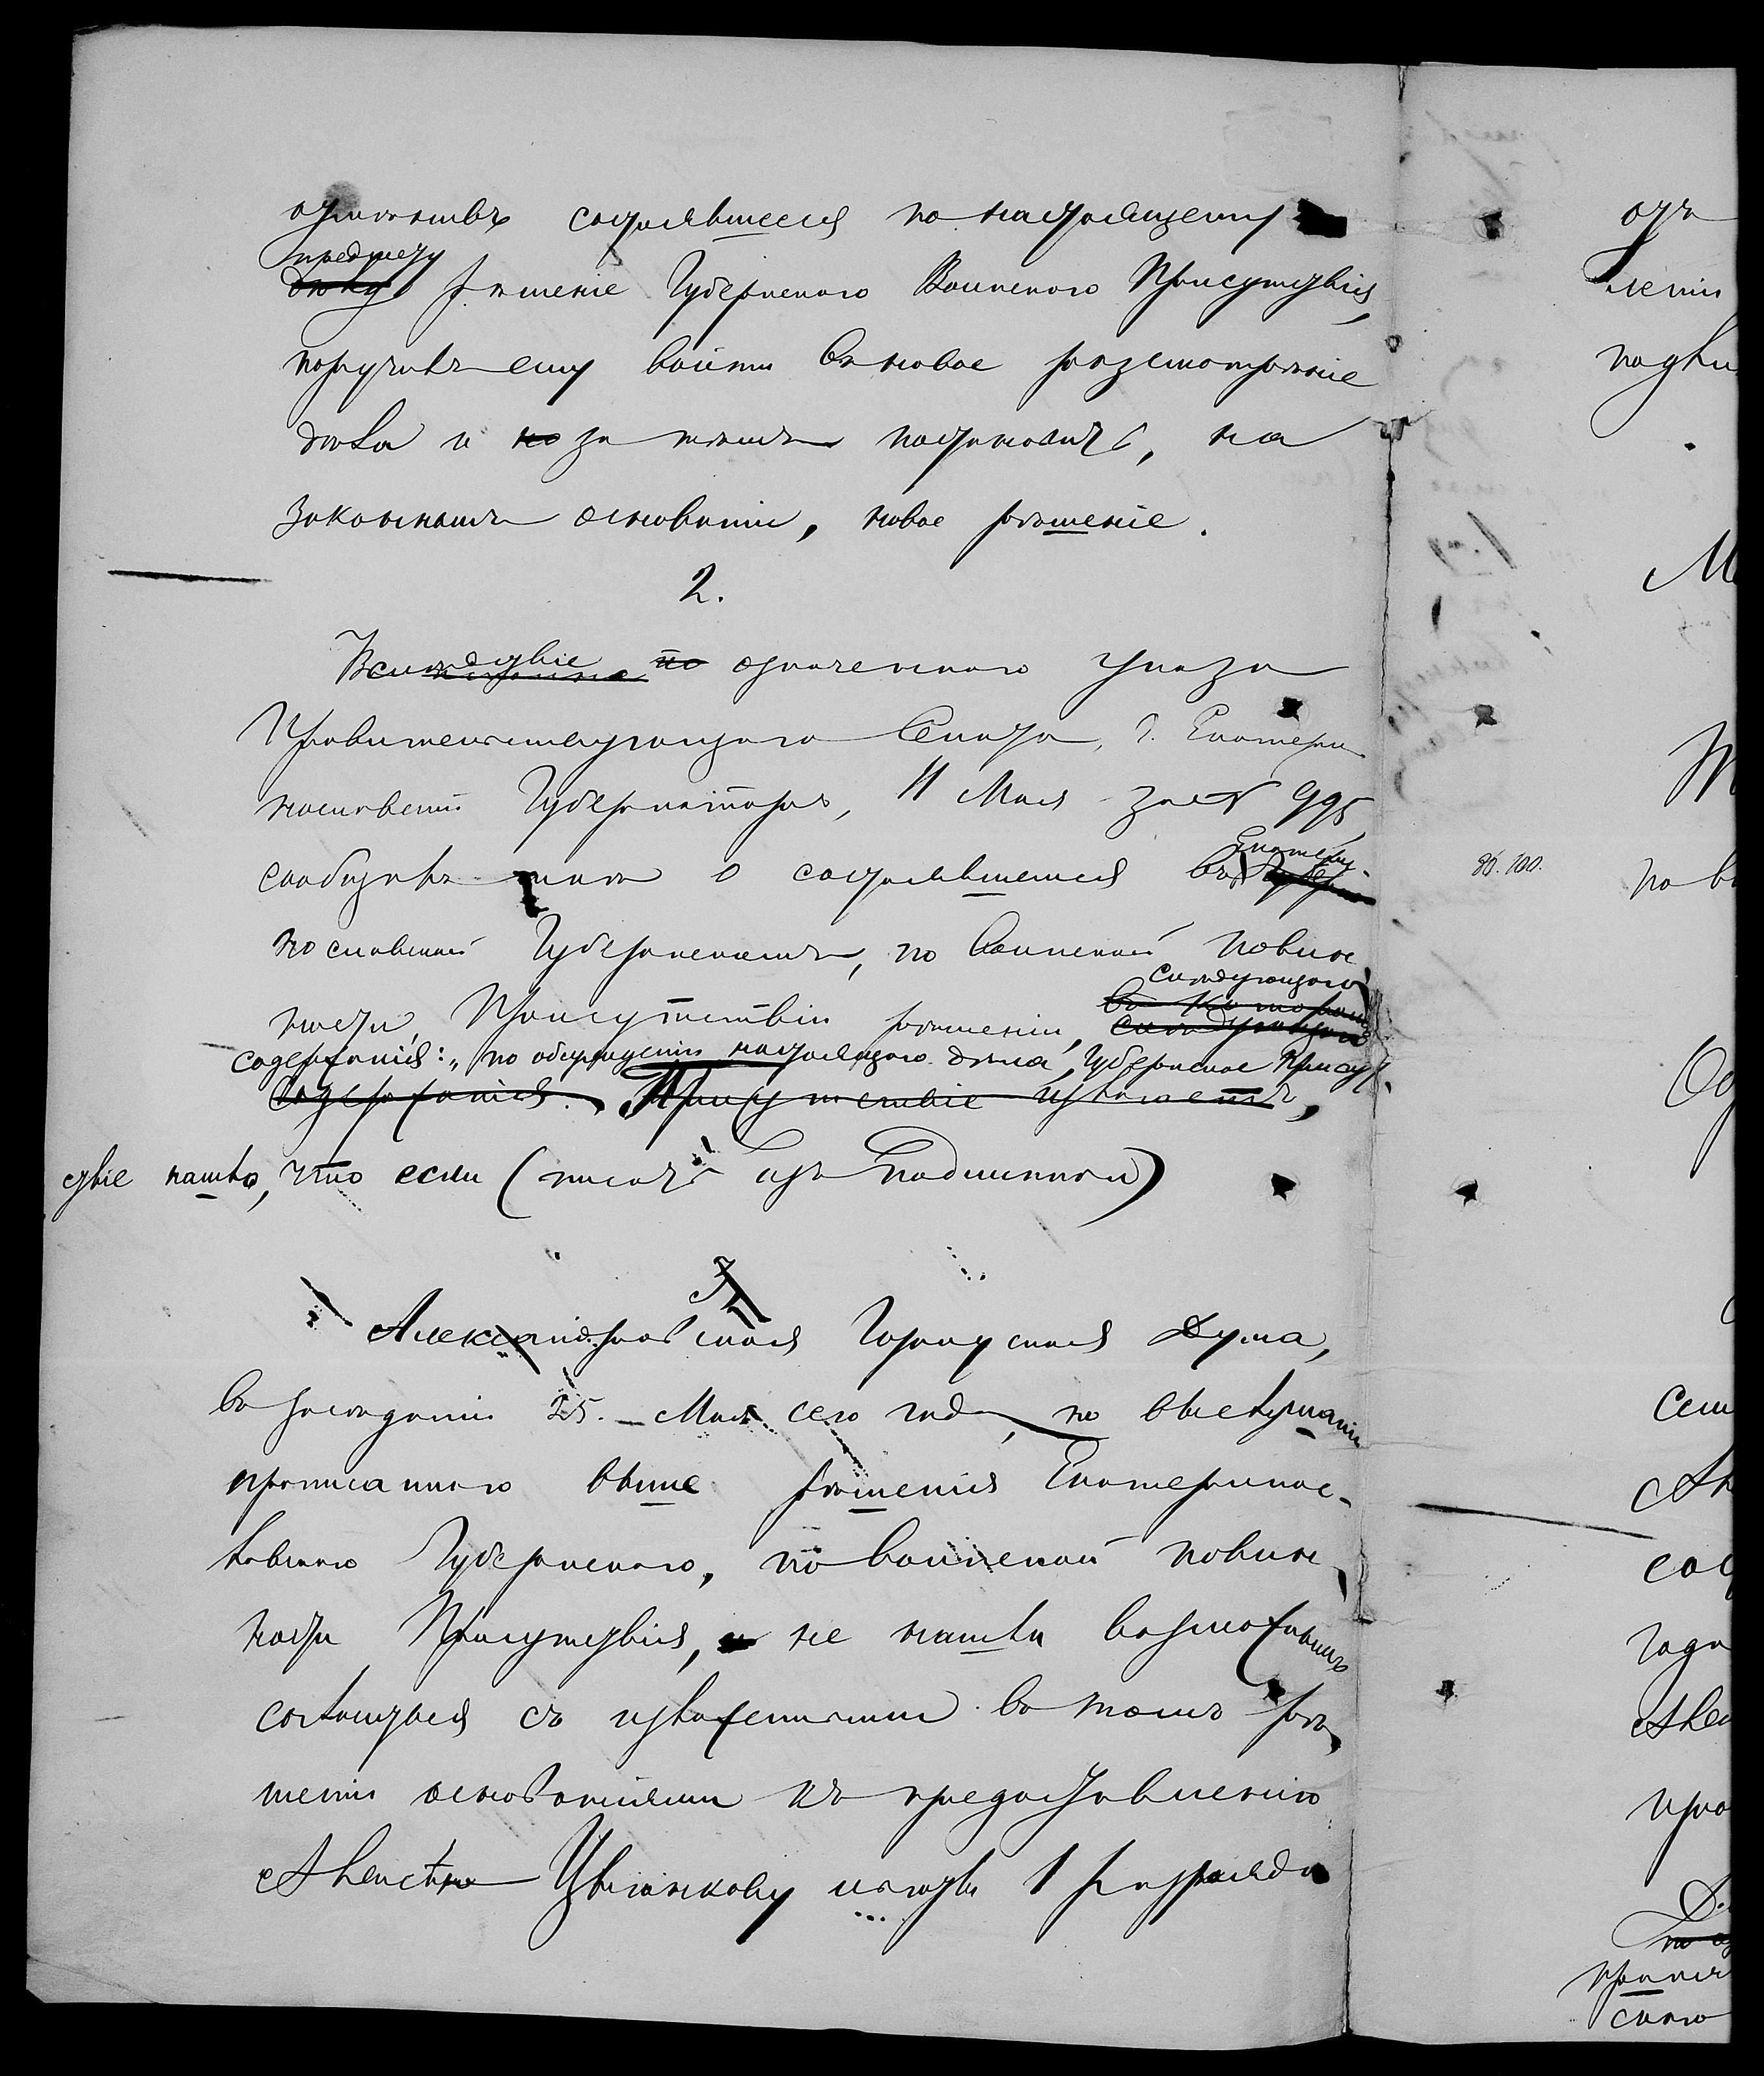 отмѣнивъ состоявшееся по настоящему
предмету
дѣлу рѣшеніе Губернскаго Воинскаго Присутствія,
поручивъ ему войти въ новое разсмотрѣніе
дѣла и за тѣмъ постановить, на
законномъ основаніи, новое рѣшеніе.
2.
Вслѣдствіе по означеннаго указа
Правительствующаго Сената, Г. Екатери-
нославскій Губернаторъ, 11 Мая за № 995,
сообщилъ о состоявшемся въ Екатери-
нославскомъ Губернскомъ, по воинской повин-
слѣдующаго
ности, Присутствіи рѣшеніи, въ которомъ слѣдующаго
содержанія: „по обсужденіи настоящаго дѣла, Губернское Присут-
содержанія. Присутствіе изложено,
ствіе нашло, что если (писать изъ подлинника)
3
Александровская Городская Дума,
въ засѣданіи 25. Мая сего года, по выслушаніи
прописаннаго выше рѣшенія Екатеринос-
лавскаго Губернскаго, по воинской повин-
ности Присутствія, не нашла возможнымъ
согласиться съ изложенными въ томъ рѣ-
шеніи основаніями къ предоставленію
Алексѣю Цыганкову льготы 1 разряда
отъ
М
95. 100.
Сем
года
Алек